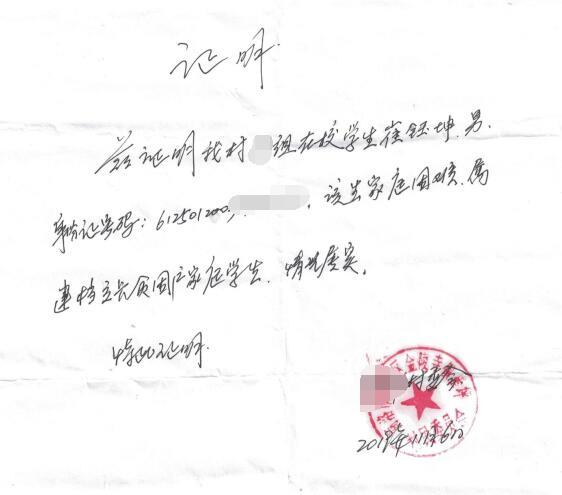 证明
兹证明我村 组在校学生崔钰坤,男,
身份证号码:612501200 ,该生家庭困难,属
建档立卡贫困户家庭学生,情况属实。
特此证明
村委会
2019年11月6日